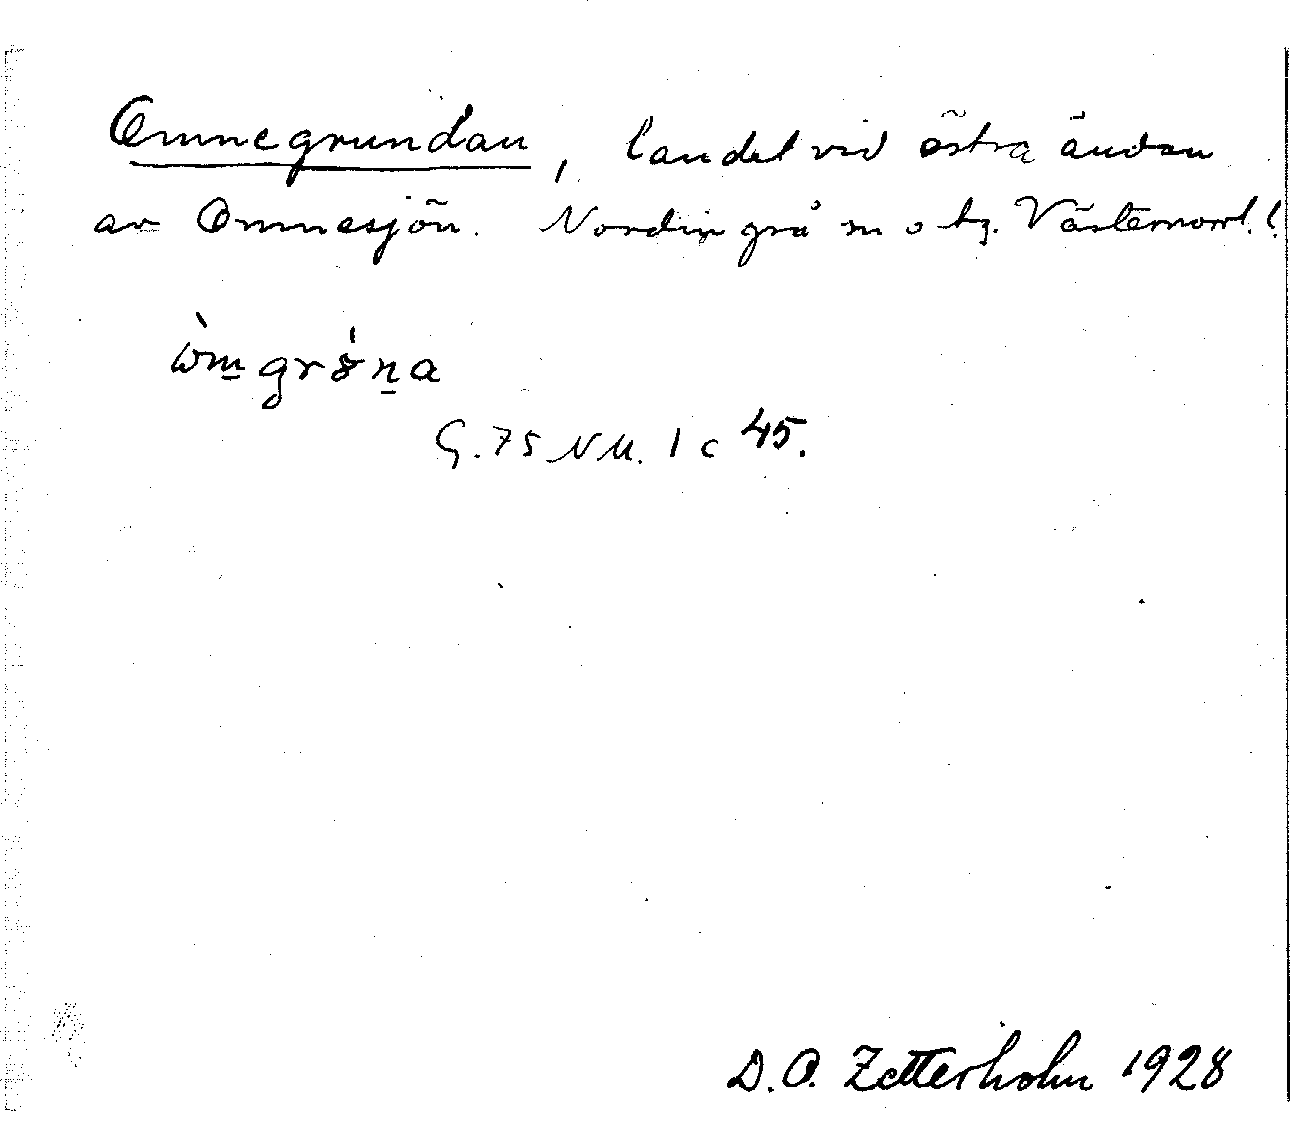 Omnegrundan, landet vid östra ändan
av Omnesjön. Nordingrå sn o tg. Västernorrl. l.
ὼm̲grȣ́n̲a
G. 75 NM. 1 c 45.
D. O. Zetterholm 1928